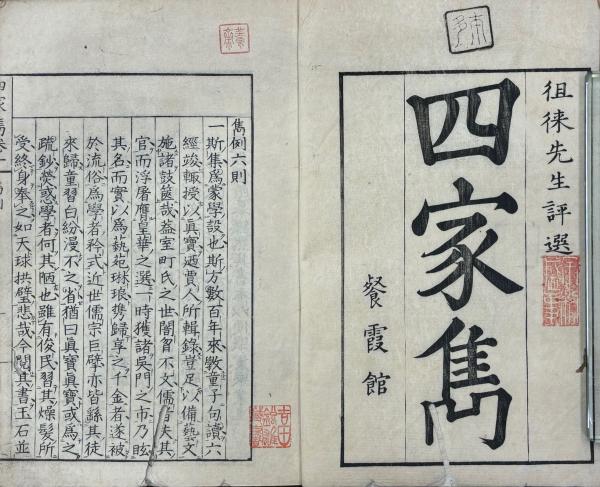 徂徠先生評選
四家雋
餐霞館
雋例六則
一斯集爲蒙學設也斯方數百年來敎童子句讀六
經竣輙授以眞寶迺賈人所輯錄豈足以備藝文
施諸鼓篋哉益室町氏之世闇曶不文儒失其
官而浮屠膺皇華之選一時獲諸吳門之市乃眩
其名而實以爲藝苑琳琅携歸享之千金者遂被
於流俗爲學者矜式近世儒宗巨擘亦皆繇其徒
來歸童習白紛漫不之省猶曰眞寶眞寶或爲之
疏鈔熒惑學者何其陋也雖有俊民習其燥髮所
受終身奉之如天球拱璧悲哉今閱其書玉石並